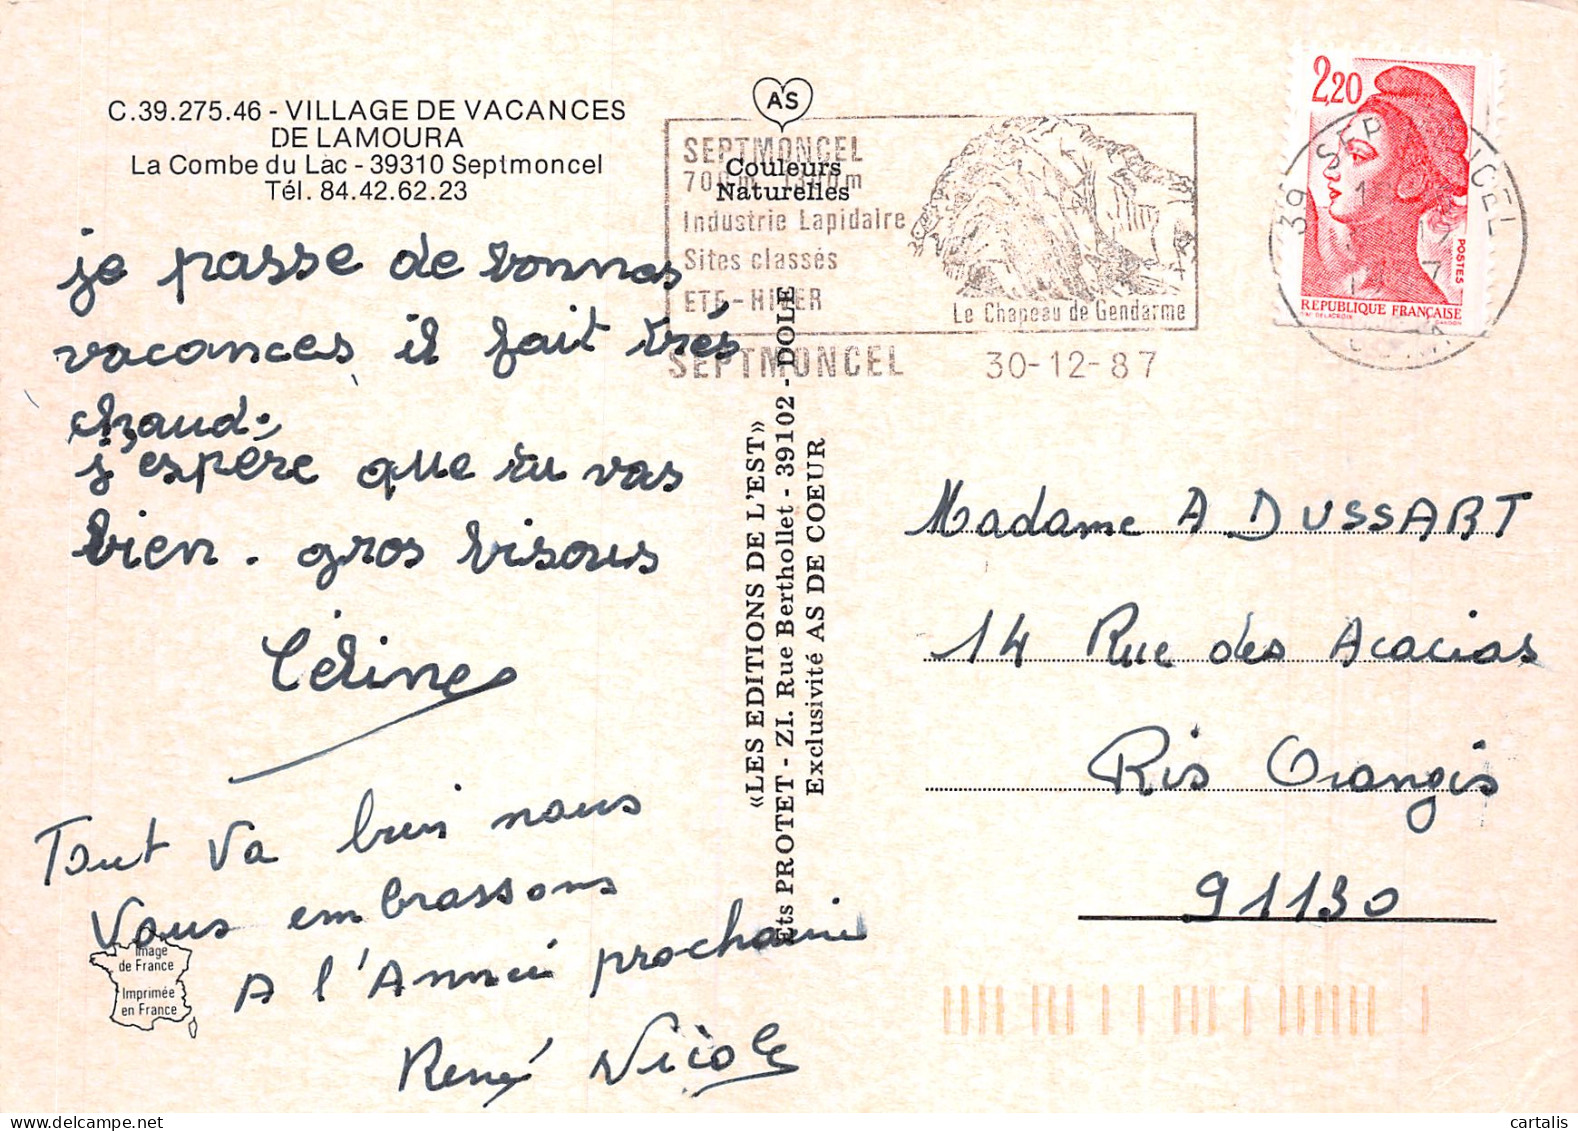 C.39.275.46 - VILLAGE DE VACANCES
DE LAMOURA
La Combe du Lac - 39310 Septmoncel
Tél. 84.42.62.23
je passe de bonnes
vacances il fait très
chaud.
j'espère que tu vas
bien. gros bisous
Céline
Tout va bien nous
Vous embrassons
A l'Année prochaine
René Nicole
Image
de France
Imprimée
en France
AS
Couleurs
Naturelles
SEPTMONCEL
Industrie Lapidaire
Sites classés
ETE-HIVER
Le Chapeau de Gendarme
SEPTMONCEL 30-12-87
«LES EDITIONS DE L'EST»
Ets PROTET - ZI. Rue Berthollet - 39102 - DOLE
Exclusivité AS DE COEUR
2,20
POSTES
REPUBLIQUE FRANÇAISE
39 SEPTMONCEL
Madame A DUSSART
14 Rue des Acacias
Ris Orangis
91130
cartalis